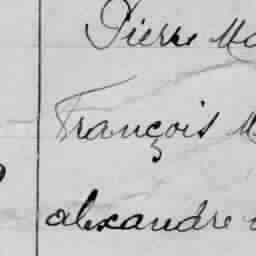 Pierre Ma
François M
alexandre